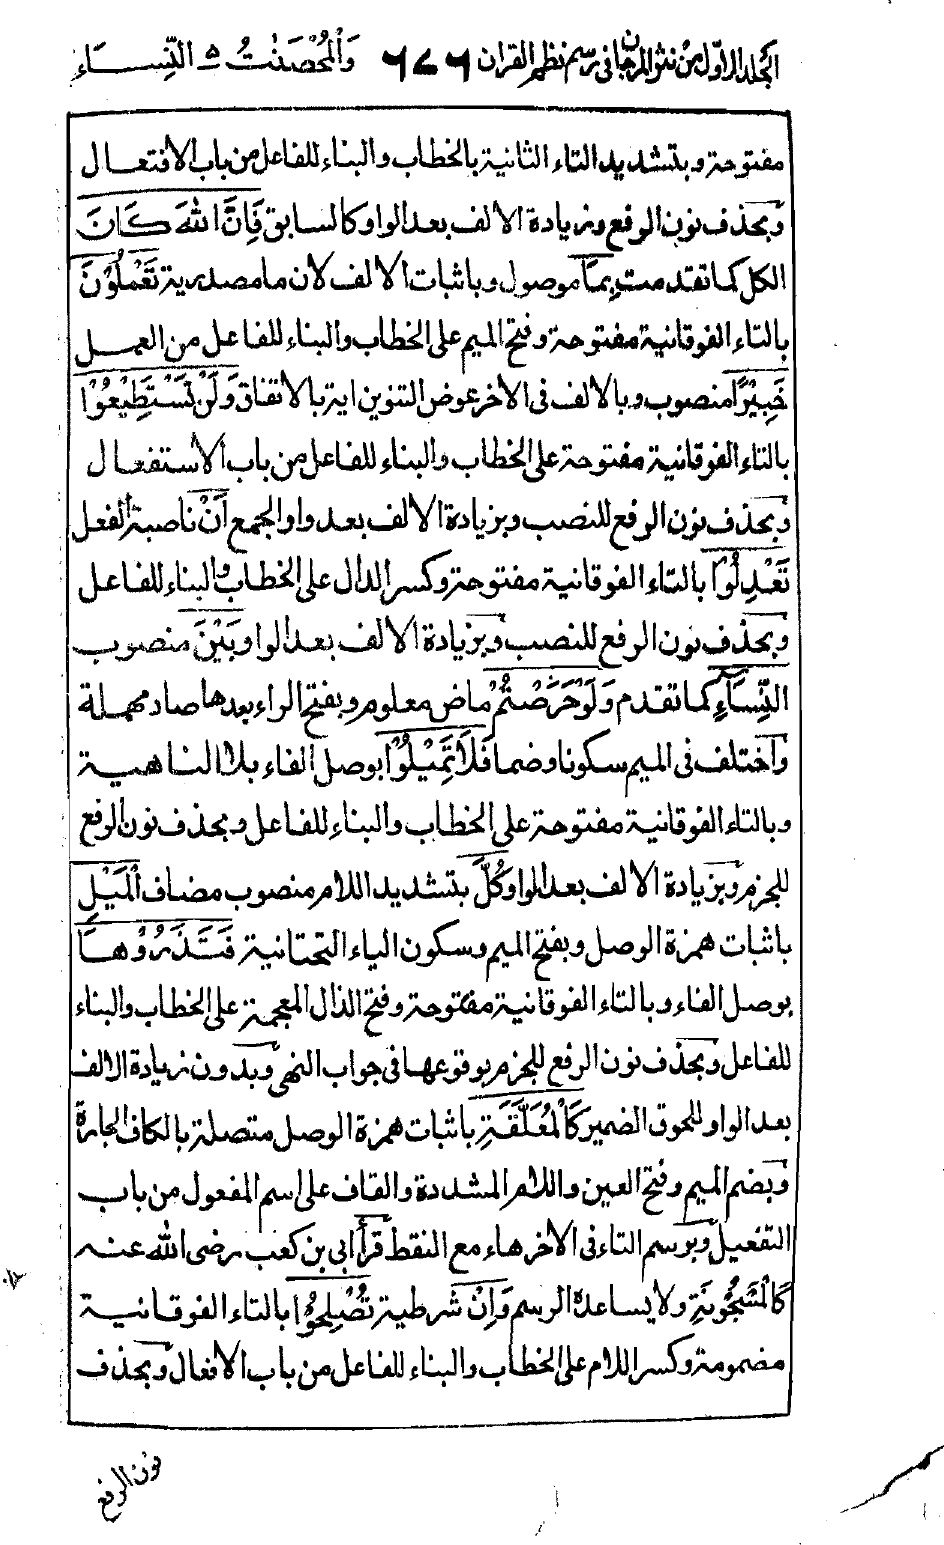 المجلد الاول من نثر المرجان في رسم نظم القران ٦٧٦ وَالْمُحْصَنٰتُ ٥ النِّسَاء
مفتوحة وبتشديد التاء الثانية بالخطاب والبناء للفاعل من باب الافتعال
وبحذف نون الرفع وزيادة الالف بعد الواو كالسابق فَاِنَّ اللّٰهَ كَانَ
الكل كما تقدمت بِمَا موصول وباثبات الالف لان ما مصدرية تَعْمَلُوْنَ
بالتاء الفوقانية مفتوحة وفتح الميم على الخطاب والبناء للفاعل من العمل
خَبِيْرًا منصوب وبالالف في الاخر عوض التنوين اية بالاتفاق وَلَنْ تَسْتَطِيْعُوْا
بالتاء الفوقانية مفتوحة على الخطاب والبناء للفاعل من باب الاستفعال
وبحذف نون الرفع للنصب وبزيادة الالف بعد واو الجمع اَنْ ناصبة الفعل
تَعْدِلُوْا بالتاء الفوقانية مفتوحة وكسر الدال على الخطاب والبناء للفاعل
وبحذف نون الرفع للنصب وبزيادة الالف بعد الواو بَيْنَ منصوب
النِّسَاءِ كما تقدم وَلَوْ حَرَصْتُمْ ماض معلوم وبفتح الراء بعدها صاد مهملة
واختلف في الميم سكونا وضما فَلَا تَمِيْلُوْا بوصل الفاء بلا الناهية
وبالتاء الفوقانية مفتوحة على الخطاب والبناء للفاعل وبحذف نون الرفع
للجزم وبزيادة الالف بعد الواو كُلَّ بتشديد اللام منصوب مضاف الْمَيْلِ
باثبات همزة الوصل وبفتح الميم وسكون الياء التحتانية فَتَذَرُوْهَا
بوصل الفاء وبالتاء الفوقانية مفتوحة وفتح الذال المعجمة على الخطاب والبناء
للفاعل وبحذف نون الرفع للجزم بوقوعها في جواب النهي وبدون زيادة الالف
بعد الواو للحوق الضمير كَالْمُعَلَّقَةِ باثبات همزة الوصل متصلة بالكاف الجارة
وبضم الميم وفتح العين واللام المشددة والقاف على اسم المفعول من باب
التفعيل وبرسم التاء في الاخر هاء مع النقط قرأ ابي بن كعب رضى الله عنه
كَالْمَسْجُوْنَةِ ولا يساعده الرسم وَاِنْ شرطية تُصْلِحُوْا بالتاء الفوقانية
مضمومة وكسر اللام على الخطاب والبناء للفاعل من باب الافعال وبحذف
نون الرفع